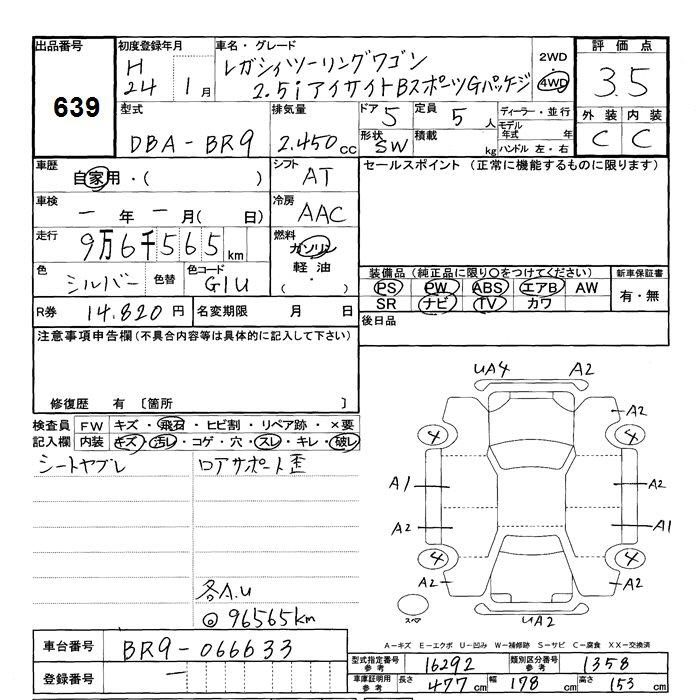 出品番号
639
初度登録年月
H
24 1月
車名・グレード
レガシィツーリングワゴン
2.5i アイサイトBスポーツGパッケージ
2WD
4WD
評価点
3.5
外装 内装
C C
型式
DBA-BR9
排気量
2.450cc
ドア 5
形状 SW
定員 5人
積載 kg
ディーラー・並行
モデル年式 年
ハンドル 左・右
車歴
自家用・( )
シフト
AT
セールスポイント (正常に機能するものに限ります)
車検
一年一月( 日)
冷房
AAC
走行
9万6千565km
燃料
ガソリン
軽油
( ・ )
色
シルバー
色替
色コード
G1U
装備品 (純正品に限り○をつけてください)
PS PW ABS エアB AW
SR ナビ TV カワ
新車保証書
有・無
R券 14.820円
名変期限 月 日
後日品
注意事項申告欄(不具合内容等は具体的に記入して下さい)
修復歴 有 〔箇所 〕
検査員記入欄
FW キズ・飛石・ヒビ割・リペア跡・×要
内装 キズ・汚レ・コゲ・穴・スレ・キレ・破レ
シートヤブレ
ロアサポート歪
各A.U
◎96565km
UA4 A2
A2
4 4
A1 A2
A2 A1
4 4
A2 A2
スペア
UA2
A-キズ E-エクボ U-凹み W-補修跡 S-サビ C-腐食 XX-交換済
車台番号 BR9-066633
登録番号 一
型式指定番号参考 16292
類別区分番号参考 1358
車庫証明用参考 長さ 477cm 幅 178cm 高さ 153cm